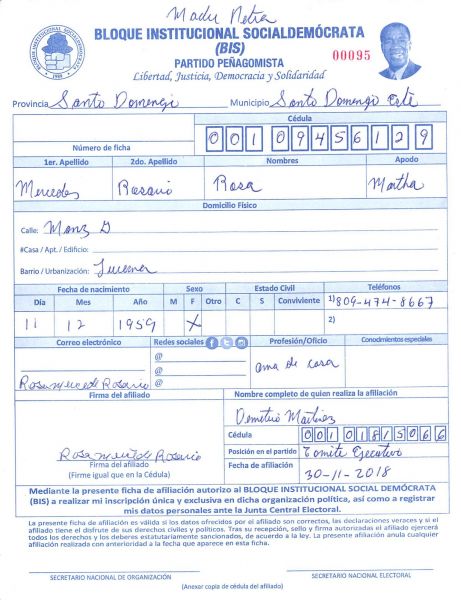 Madre Netra
BLOQUE INSTITUCIONAL SOCIALDEMÓCRATA
(BIS)
00095
PARTIDO PEÑAGOMISTA
Libertad, Justicia, Democracia y Solidaridad
Provincia Santo Domingo Municipio Santo Domingo Este
Cédula
Número de ficha 00109456129
1er. Apellido 2do. Apellido Nombres Apodo
Mercedes Rosario Rosa Martha
Domicilio Físico
Calle: Manz G
#Casa / Apt. / Edificio:
Barrio / Urbanización: Lucerna
Fecha de nacimiento Sexo Estado Civil Teléfonos
Día Mes Año M F Otro C S Conviviente 1) 809-474-8667
11 12 1959 X 2)
Correo electrónico Redes sociales Profesión/Oficio Conocimientos especiales
@
@ ama de casa
Rosa mercede Rosario @
Firma del afiliado Nombre completo de quien realiza la afiliación
Demetrio Martinez
Cédula 00101815066
Rosa mercede Rosario Posición en el partido Comite Ejecutivo
Firma del afiliado Fecha de afiliación
(Firme igual que en la Cédula) 30-11-2018
Mediante la presente ficha de afiliación autorizo al BLOQUE INSTITUCIONAL SOCIAL DEMÓCRATA
(BIS) a realizar mi inscripción única y exclusiva en dicha organización política, así como a registrar
mis datos personales ante la Junta Central Electoral.
La presente ficha de afiliación es válida si los datos ofrecidos por el afiliado son correctos, las declaraciones veraces y si el
afiliado tiene el disfrute de sus derechos civiles y políticos. Tras su recepción, sello y firma autorizadas el afiliado ejercerá
todos los derechos y los deberes estatutariamente sancionados, de acuerdo a la ley. La presente afiliación anula cualquier
afiliación realizada con anterioridad a la fecha que aparece en esta ficha.
SECRETARIO NACIONAL DE ORGANIZACIÓN SECRETARIO NACIONAL ELECTORAL
(Anexar copia de cédula del afiliado)